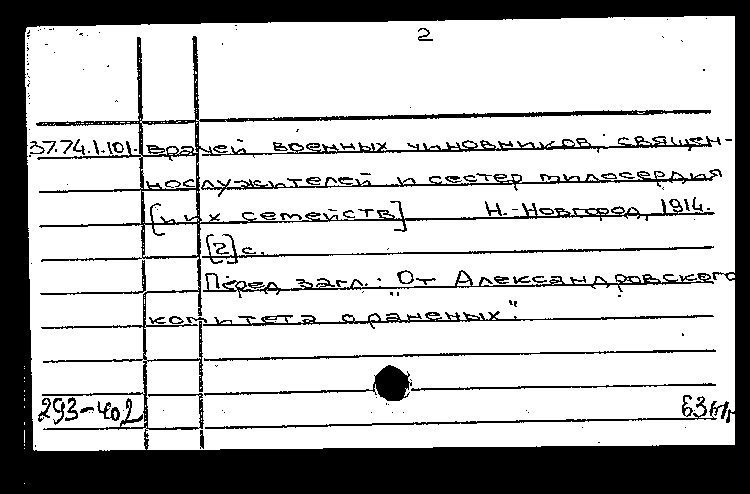 2
37.74.1.101. врачей военных чиновников, священ-
нослужителей и сестер милосердия
[и их семейств] Н.-Новгород, 1914.
[2] с.
Перед загл.: "От Александровского
комитета о раненых".
293-402